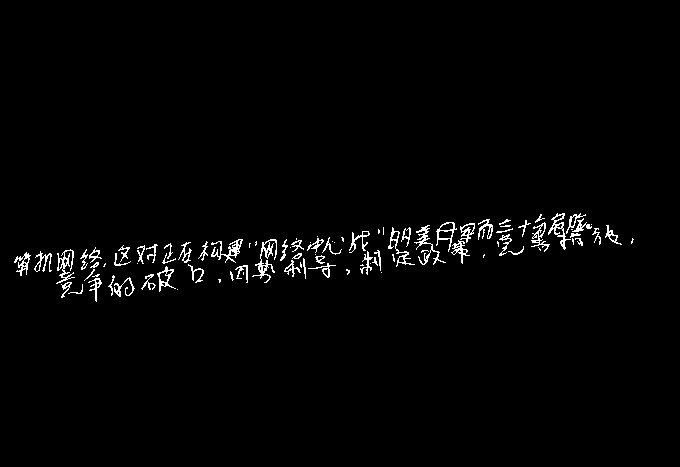 算机网络,这对正在构建"网络中心战"的美日军而言十分有
竞争的破口,因势利导,制定政策,完善措施,